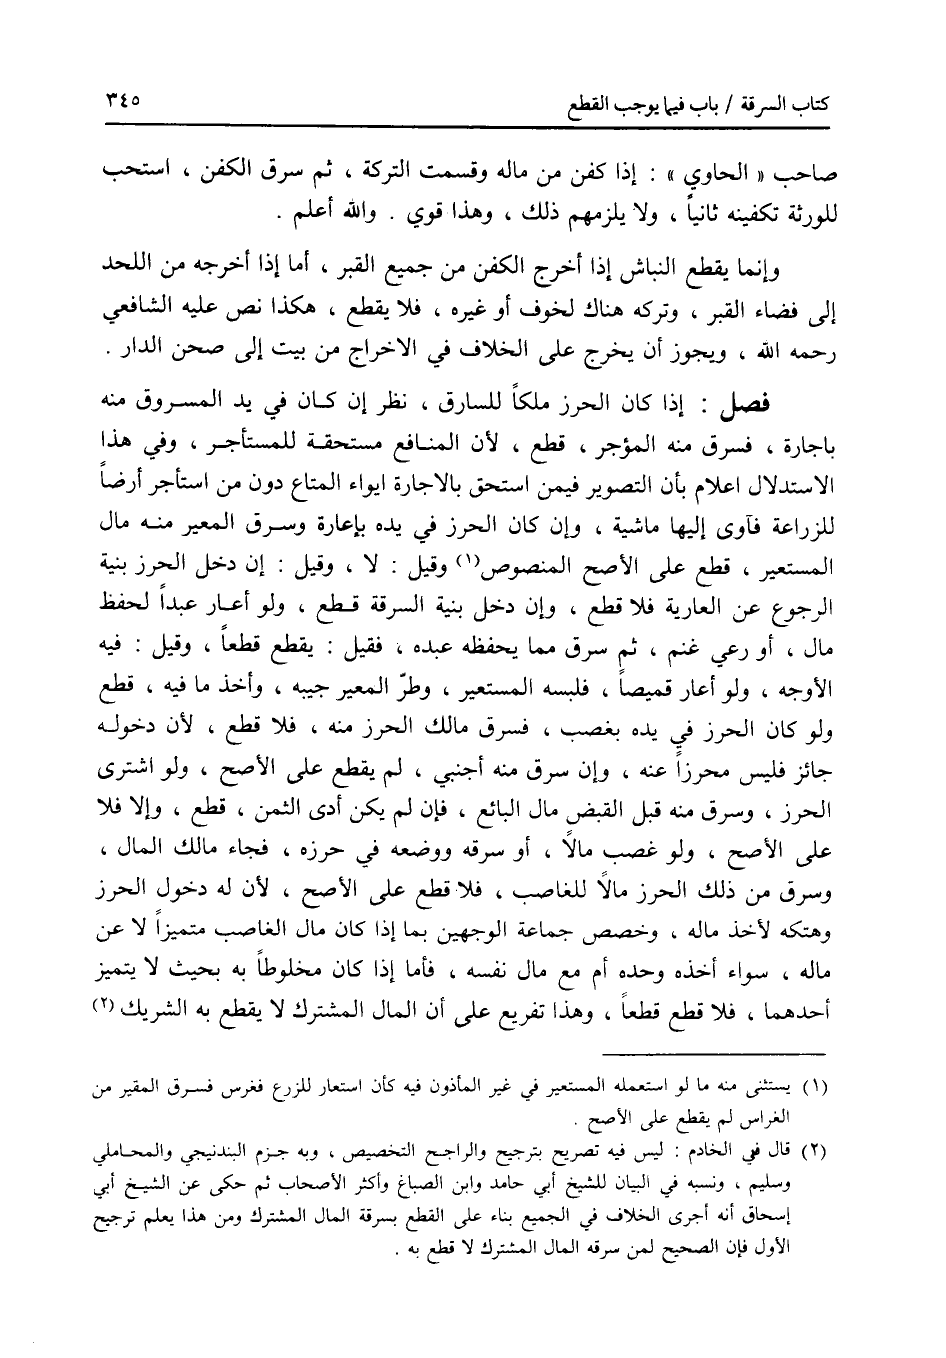 كتاب السرقة / باب فيما يوجب القطع
٣٤٥
صاحب « الحاوي » : إذا كفن من ماله وقسمت التركة ، ثم سرق الكفن ، استحب
للورثة تكفينه ثانياً ، ولا يلزمهم ذلك ، وهذا قوي . والله أعلم .
وإنما يقطع النباش إذا أخرج الكفن من جميع القبر ، أما إذا أخرجه من اللحد
إلى فضاء القبر ، وتركه هناك لخوف أو غيره ، فلا يقطع ، هكذا نص عليه الشافعي
رحمه الله ، ويجوز أن يخرج على الخلاف في الاخراج من بيت إلى صحن الدار .
فصل : إذا كان الحرز ملكاً للسارق ، نظر إن كان في يد المسروق منه
باجارة ، فسرق منه المؤجر ، قطع ، لأن المنافع مستحقة للمستأجر ، وفي هذا
الاستدلال اعلام بأن التصوير فيمن استحق بالاجارة ايواء المتاع دون من استأجر أرضاً
للزراعة فآوى إليها ماشية ، وإن كان الحرز في يده بإعارة وسرق المعير منه مال
المستعير ، قطع على الأصح المنصوص(١) وقيل : لا ، وقيل : إن دخل الحرز بنية
الرجوع عن العارية فلا قطع ، وإن دخل بنية السرقة قطع ، ولو أعار عبداً لحفظ
مال ، أو رعي غنم ، ثم سرق مما يحفظه عبده ، فقيل : يقطع قطعاً ، وقيل : فيه
الأوجه ، ولو أعار قميصاً ، فلبسه المستعير ، وطرّ المعير جيبه ، وأخذ ما فيه ، قطع
ولو كان الحرز في يده بغصب ، فسرق مالك الحرز منه ، فلا قطع ، لأن دخوله
جائز فليس محرزاً عنه ، وإن سرق منه أجنبي ، لم يقطع على الأصح ، ولو اشترى
الحرز ، وسرق منه قبل القبض مال البائع ، فإن لم يكن أدى الثمن ، قطع ، وإلا فلا
على الأصح ، ولو غصب مالاً ، أو سرقه ووضعه في حرزه ، فجاء مالك المال ،
وسرق من ذلك الحرز مالاً للغاصب ، فلا قطع على الأصح ، لأن له دخول الحرز
وهتكه لأخذ ماله ، وخصص جماعة الوجهين بما إذا كان مال الغاصب متميزاً لا عن
ماله ، سواء أخذه وحده أم مع مال نفسه ، فأما إذا كان مخلوطاً به بحيث لا يتميز
أحدهما ، فلا قطع قطعاً ، وهذا تفريع على أن المال المشترك لا يقطع به الشريك (٢)
(١) يستثنى منه ما لو استعمله المستعير في غير المأذون فيه كأن استعار للزرع فغرس فسرق المقير من
الغراس لم يقطع على الأصح .
(٢) قال في الخادم : ليس فيه تصريح بترجيح والراجح التخصيص ، وبه جزم البندنيجي والمحاملي
وسليم ، ونسبه في البيان للشيخ أبي حامد وابن الصباغ وأكثر الأصحاب ثم حكى عن الشيخ أبي
إسحاق أنه أجرى الخلاف في الجميع بناء على القطع بسرقة المال المشترك ومن هذا يعلم ترجيح
الأول فإن الصحيح لمن سرقه المال المشترك لا قطع به .